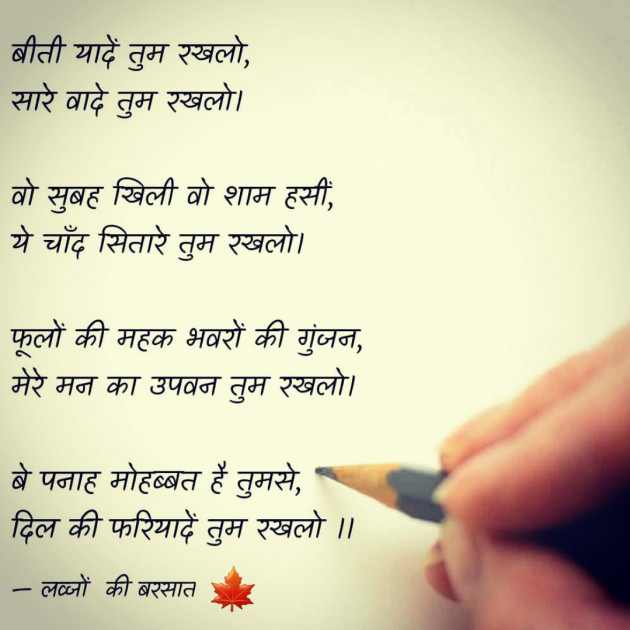 बीती यादें तुम रखलो,
सारे वादे तुम रखलो।
वो सुबह खिली वो शाम हसीं,
ये चाँद सितारे तुम रखलो।
फूलों की महक भवरों की गुंजन,
मेरे मन का उपवन तुम रखलो।
बे पनाह मोहब्बत है तुमसे,
दिल की फरियादें तुम रखलो ।।
– लव्जों की बरसात